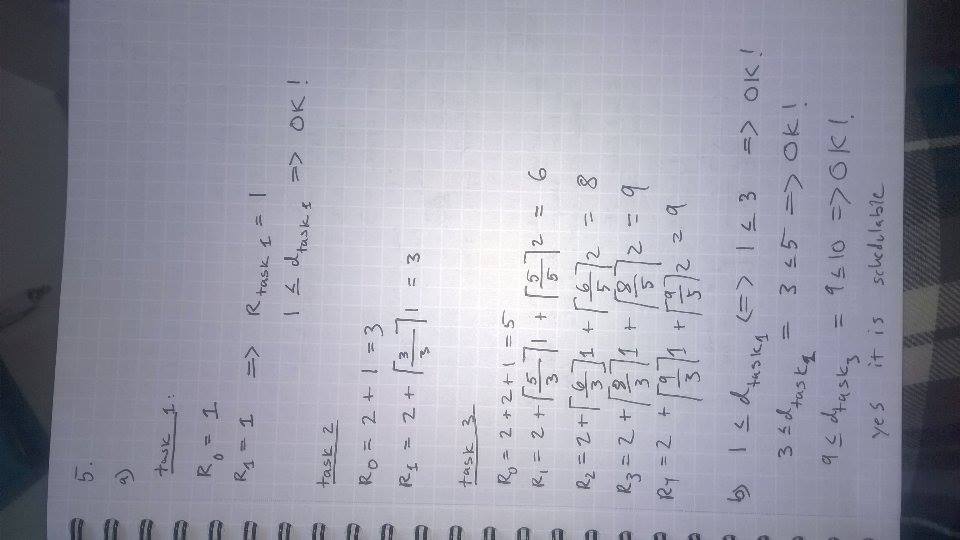 5.
a)
task 1:
R₀ = 1
R₁ = 1 => R task 1 = 1
1 ≤ d task 1 => OK!
task 2
R₀ = 2 + 1 = 3
R₁ = 2 + ⌈3/3⌉1 = 3
task 3
R₀ = 2 + 2 + 1 = 5
R₁ = 2 + ⌈5/3⌉1 + ⌈5/5⌉2 = 6
R₂ = 2 + ⌈6/3⌉1 + ⌈6/5⌉2 = 8
R₃ = 2 + ⌈8/3⌉1 + ⌈8/5⌉2 = 9
R₄ = 2 + ⌈9/3⌉1 + ⌈9/5⌉2 = 9
b) 1 ≤ d task 1 <=> 1 ≤ 3 => OK!
3 ≤ d task 2 = 3 ≤ 5 => OK!
9 ≤ d task 3 = 9 ≤ 10 => OK!
yes it is schedulable